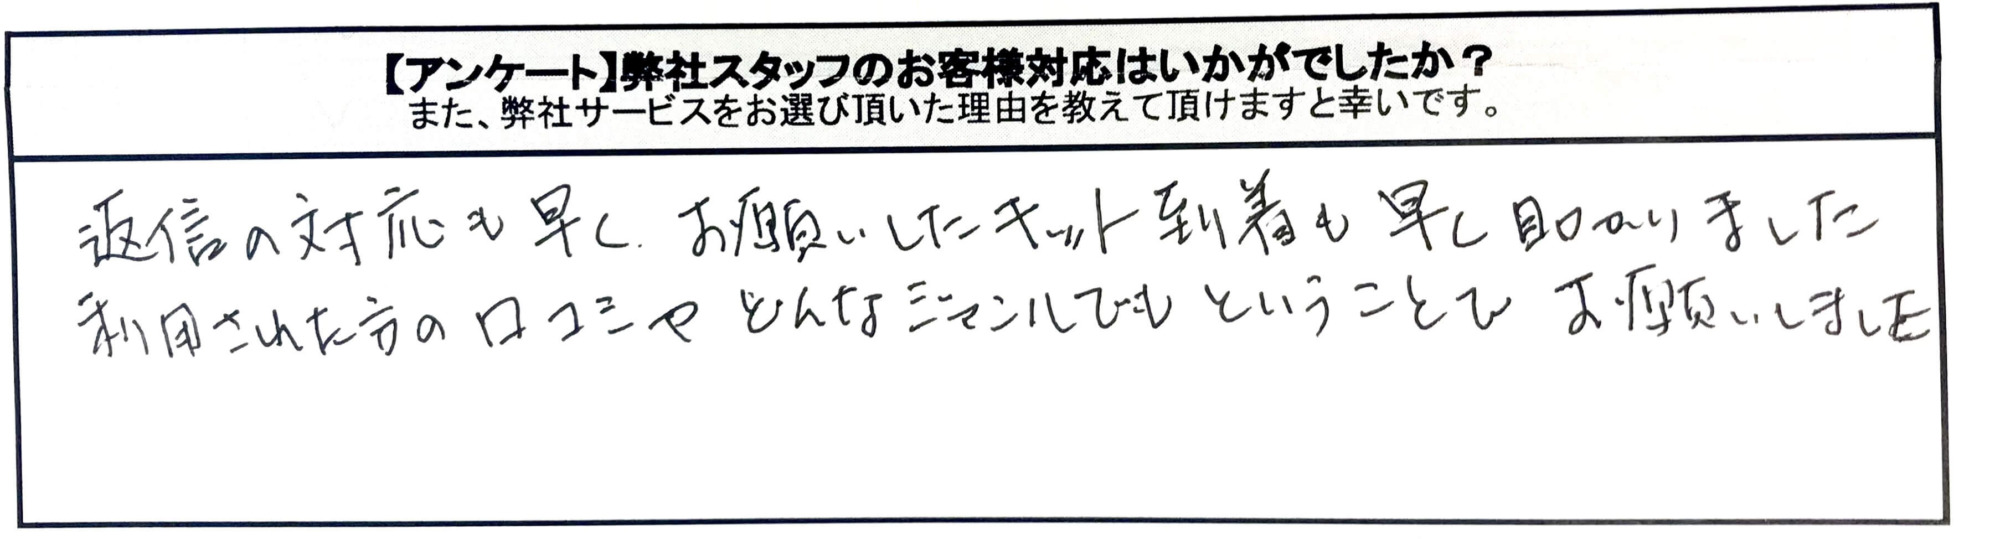 【アンケート】弊社スタッフのお客様対応はいかがでしたか？
また、弊社サービスをお選び頂いた理由を教えて頂けますと幸いです。
返信の対応も早く、お願いしたキット到着も早く助かりました
利用された方の口コミやどんなジャンルでもということでお願いしました